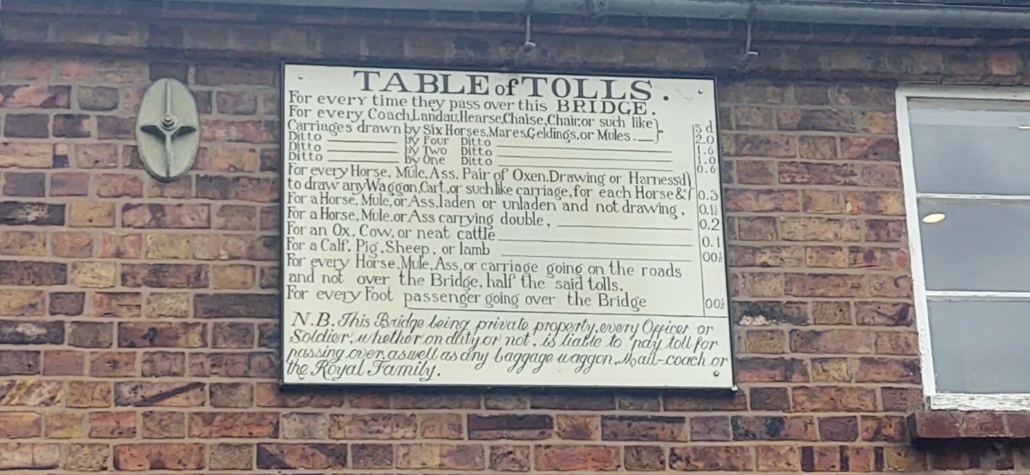 TABLE of TOLLS.
For every time they pass over this BRIDGE.
For every Coach,Landau,Hearse,Chaise,Chair,or such like
Carriages drawn by Six Horses,Mares,Geldings,or Mules. s d 2.0
Ditto by Four Ditto 1.6
Ditto by Two Ditto 1.0
Ditto by One Ditto 0.6
For every Horse, Mule, Ass, Pair of Oxen,Drawing or Harnessd
to draw any Waggon,Cart,or such like carriage,for each Horse &c 0.3
For a Horse, Mule,or Ass,laden or unladen and not drawing, 0.1½
For a Horse, Mule,or Ass carrying double, 0.2
For an Ox, Cow,or neat cattle 0.1
For a Calf, Pig, Sheep, or lamb 00½
For every Horse,Mule,Ass,or carriage going on the roads
and not over the Bridge, half the said tolls.
For every Foot passenger going over the Bridge 00½
N.B. This Bridge being private property,every Officer or
Soldier, whether on duty or not, is liable to pay toll for
passing over,as well as any baggage waggon, Mail-coach or
the Royal Family.